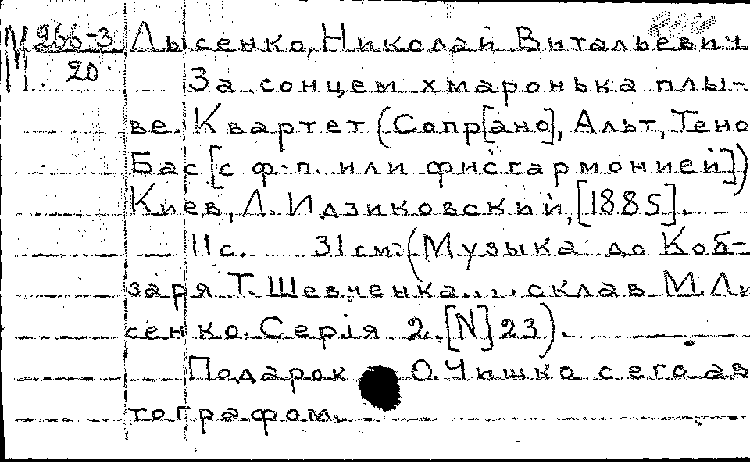 М 266-3 Лысенко, Николай Витальевич
20
За сонцем хмаронька плы-
ве. Квартет (Сопр[ано], Альт, Тено
Бас [с ф-п. или фисгармонией])
Киев, Л. Идзиковский, [1885].
11с. 31см. (Музыка до Коб-
заря Т. Шевченка... склав М. Ли
сенко. Серія 2. [N] 23).
Подарок О. Чишко с его ав
тографом.